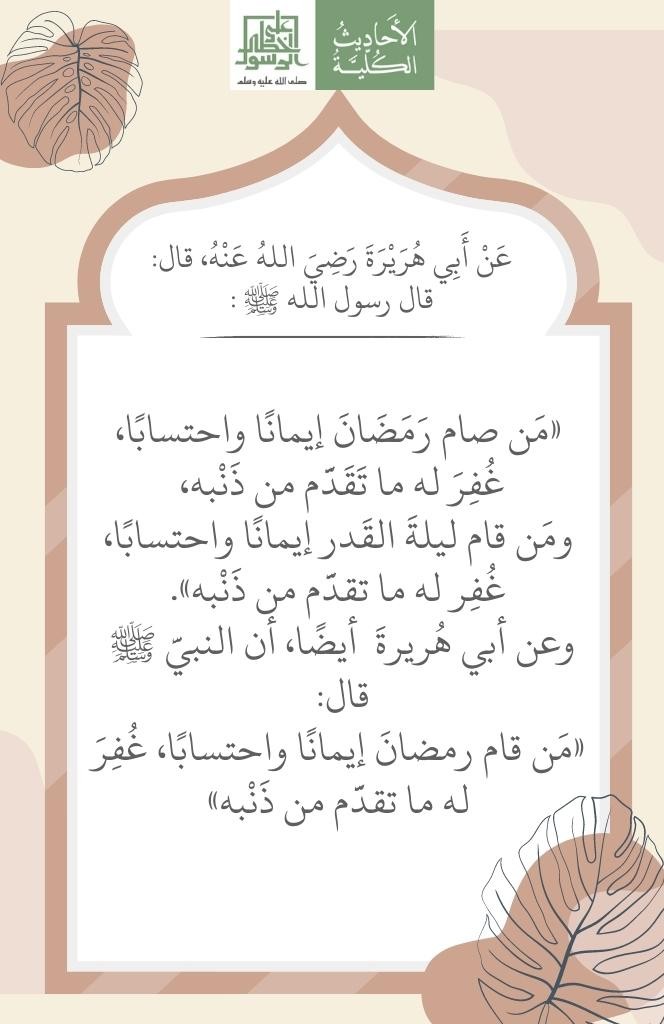 الأَحاديثُ
الكُلِّيَّةُ
على
خطى
الرسول
صلى الله عليه وسلم
عَنْ أَبِي هُرَيْرَةَ رَضِيَ اللهُ عَنْهُ، قال:
قال رسول الله ﷺ :
«مَن صام رَمَضَانَ إيمانًا واحتسابًا،
غُفِرَ له ما تَقَدّم من ذَنْبه،
ومَن قام ليلةَ القَدر إيمانًا واحتسابًا،
غُفِر له ما تقدّم من ذَنْبه».
وعن أبي هُريرةَ أيضًا، أن النبيّ ﷺ
قال:
«مَن قام رمضانَ إيمانًا واحتسابًا، غُفِرَ
له ما تقدّم من ذَنْبه»